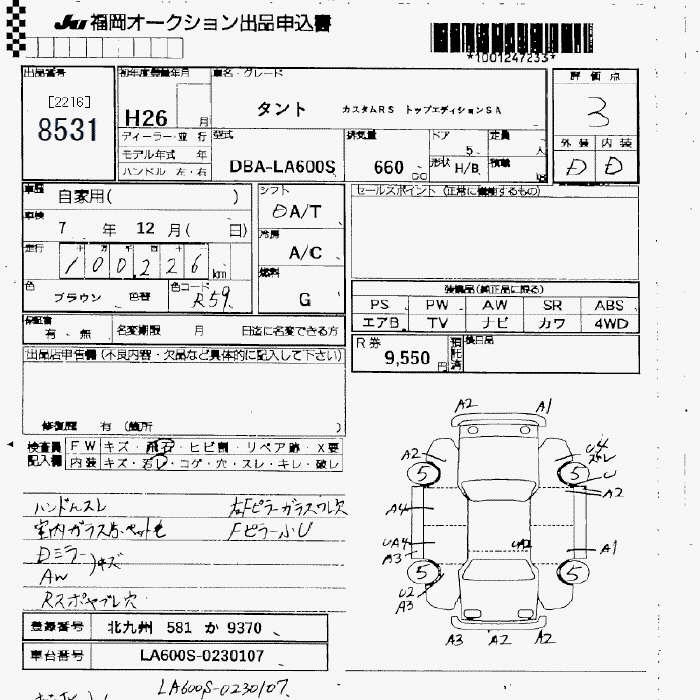 JU 福岡オークション出品申込書
*1001247233*
出品番号
[2216]
8531
初年度登録年月
H26 月
ディーラー・並 行
モデル年式 年
ハンドル 左・右
車名・グレード
タント カスタムRS トップエディションSA
型式
DBA-LA600S
排気量
660 CC
ドア
5
定員
人
形状 H/B
積載
評価点
3
外装 内装
D D
車歴 自家用( )
車検 7 年 12 月( 日)
走行
十 万 千 百 十
100226 km
色 ブラウン 色替
色コード R59
シフト
A/T
冷房
A/C
燃料
G
セールスポイント (正常に機能するもの)
装備品(純正品に限る)
PS PW AW SR ABS
エアB TV ナビ カワ 4WD
保証書
有・無
名変期限 月 日迄に名変できる方
R券
9,550 円
預託済
後日品
出品店申告欄(不良内容・欠品など具体的に記入して下さい)
修復歴 有 (箇所 )
検査員記入欄
FW キズ・飛石・ヒビ割・リペア跡・X要
内装 キズ・ヨレ・コゲ・穴・スレ・キレ・破レ
ハンドルスレ
右Fピラーガラスワレ穴
室内ガラス赤ペット毛
FピラーふU
Dミラー
AW
キズ
Rスポヤブレ穴
登録番号 北九州 581 か 9370
車台番号 LA600S-0230107
LA600S-0230107
A2 A1
A2
U4
ズレ
U
A2
5 5
A4
UA4
A3
UA2
A1
5 5
U2
A3
A3 A2 A2